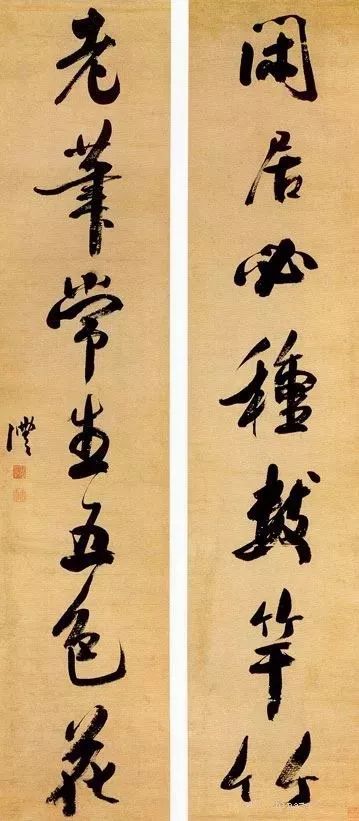 閑居必種數竿竹
老筆常生五色花
澧